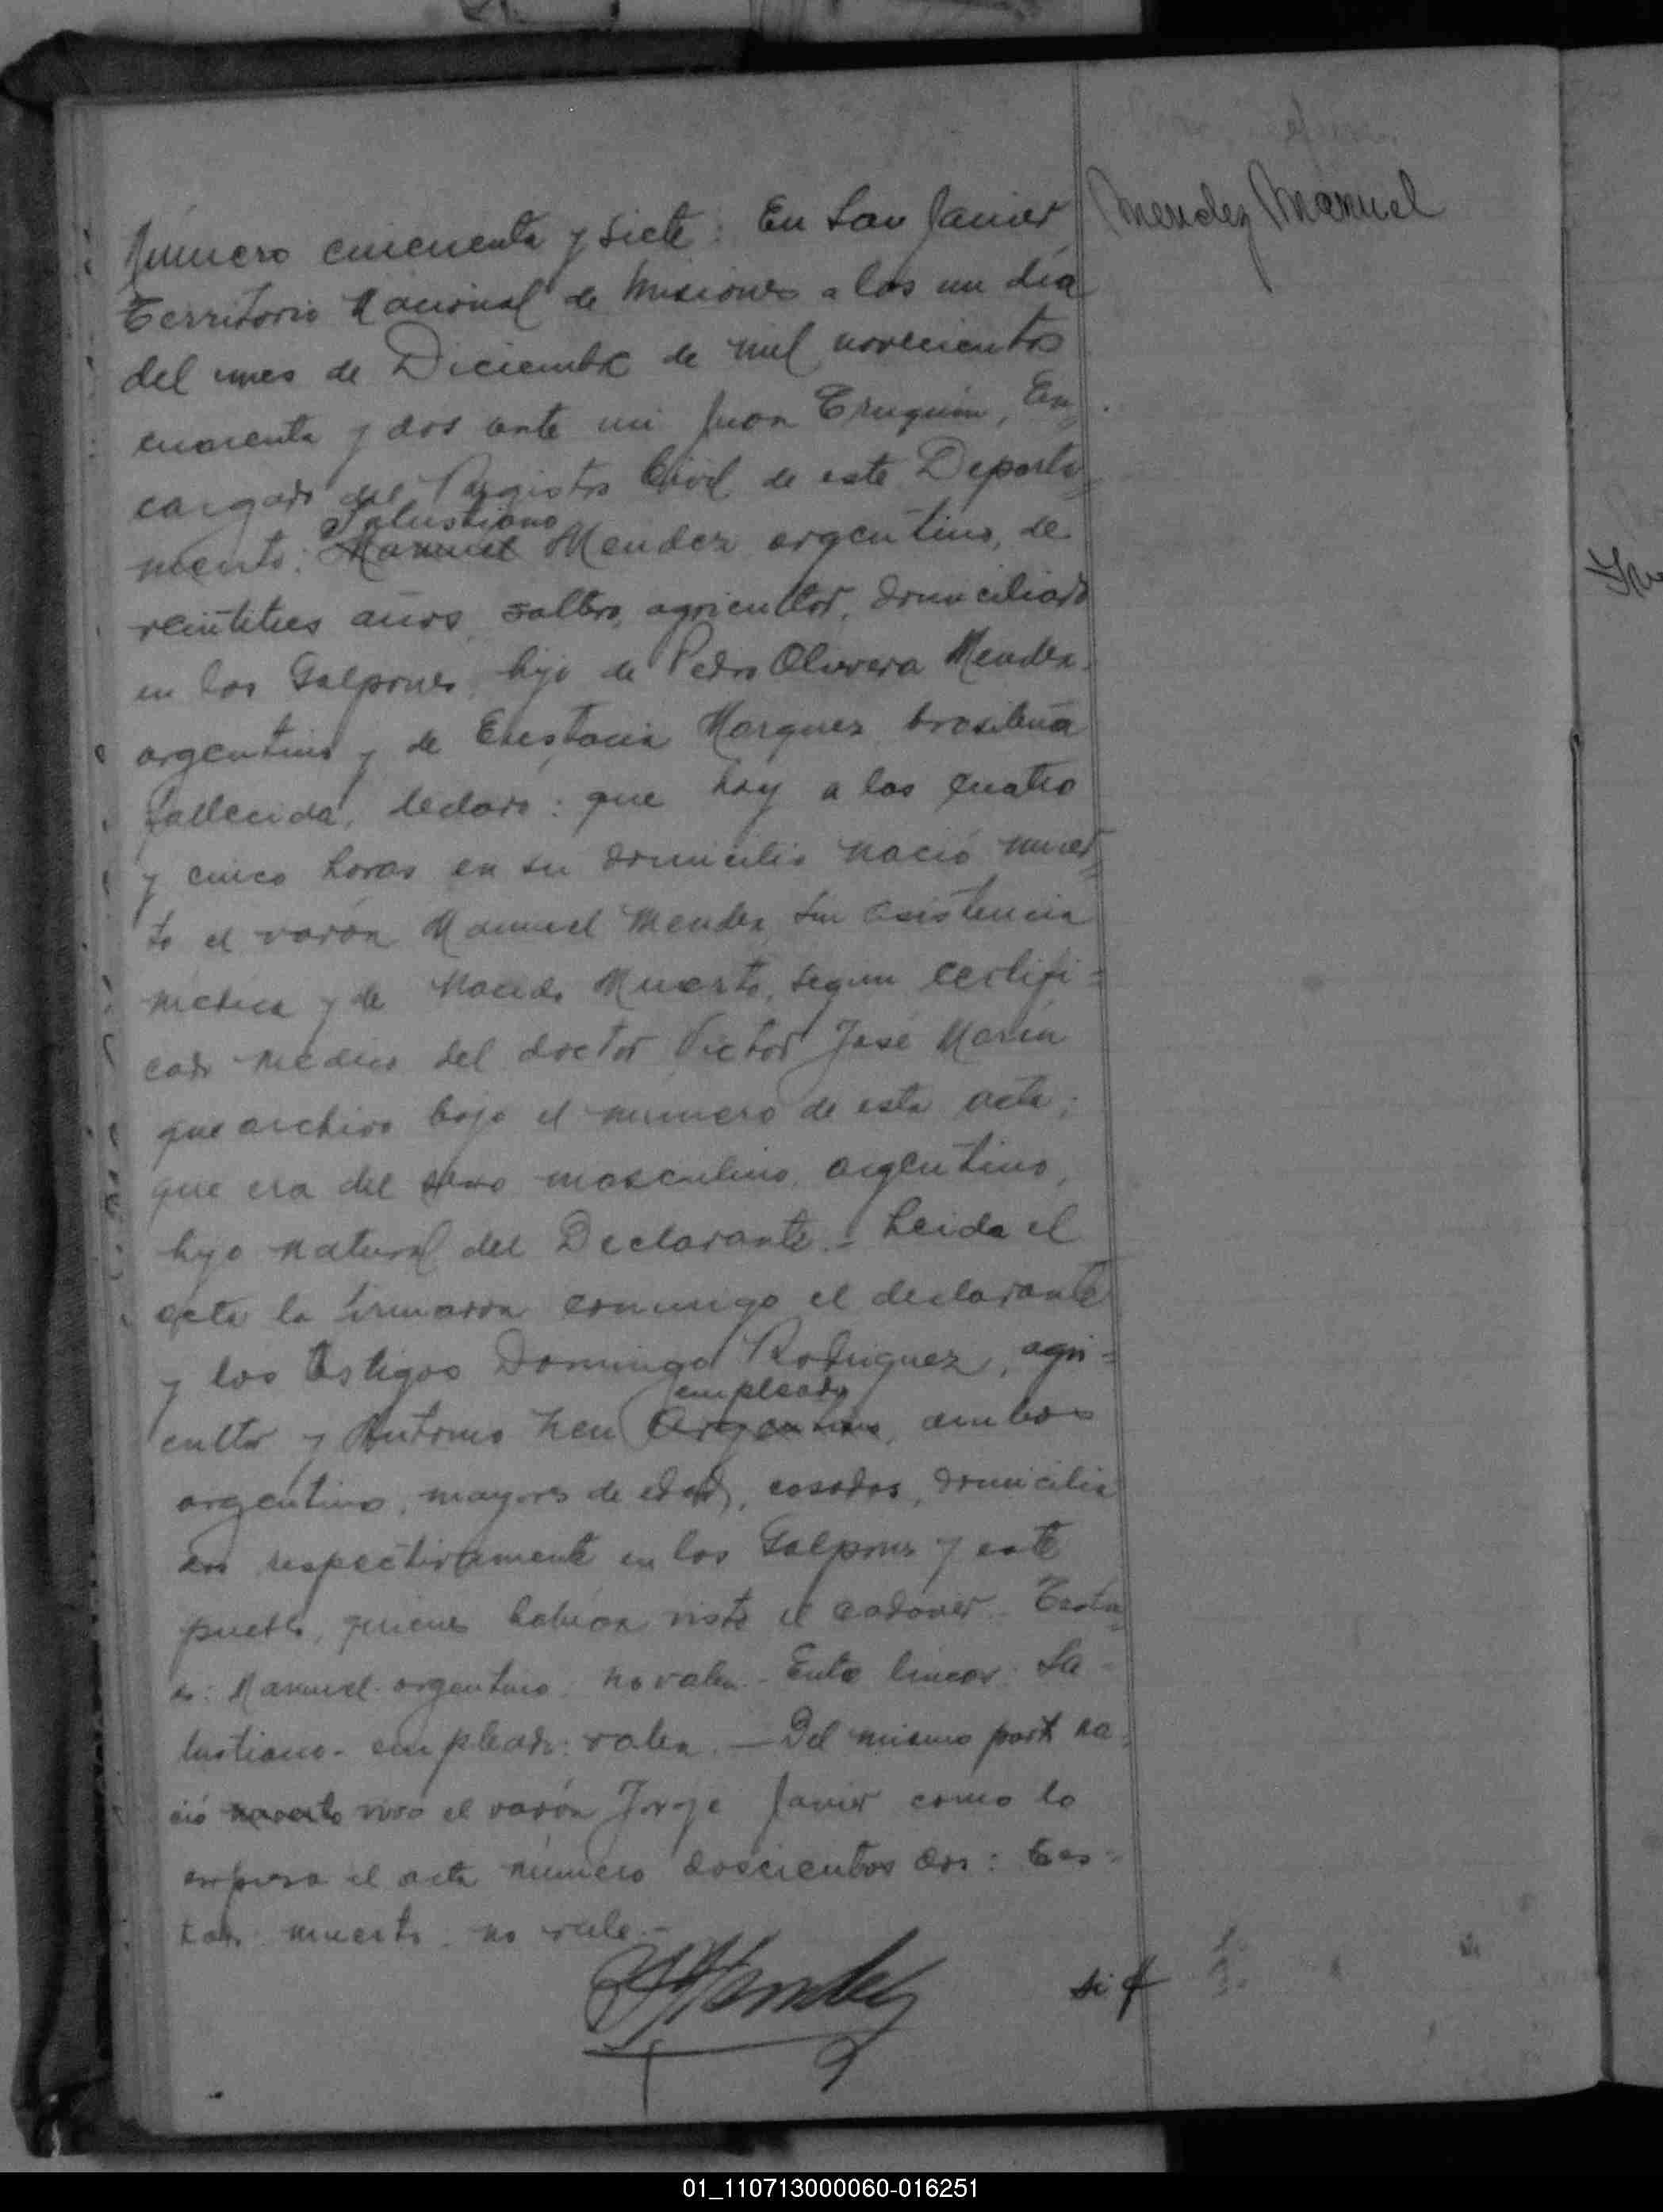 Mendez Manuel
Número cincuenta y siete: En San Javier
Territorio Nacional de Misiones a los un día
del mes de Diciembre de mil novecientos
cuarenta y dos ante mi Juan Eruquin, En=
cargado del Registro Civil de este Departa=
mento: Manuel Mendez argentino, de
Salustiano
veintitres años, soltero, agricultor, domiciliado
en los Galpones, hijo de Pedro Olivera Mendez
argentino y de Marquez brasileña
fallecida, declaro: que hoy a las cuatro
y cinco horas en su domicilio nació muer=
to el varón Manuel Mendez sin asistencia
médica y de Nacido Muerto, según certifi=
cado médico del doctor Victor José Marin
que archivo bajo el número de esta acta;
que era del sexo masculino, argentino,
hijo natural del Declarante.- Leida el
acta la firmaron conmigo el declarante
y los testigos Domingo Rodriguez, agri=
cultor y Antonio argentino, ambos
empleado
argentino, mayores de edad, casados, domicilia
dos respectivamente en los Galpones y este
pueblo, quienes habian visto el cadaver.- Testa=
do: Manuel- argentino: no valen.- Entre lineas: Sa-
lustiano- empleado: valen.- Del mismo parto na=
ció muerto vivo el varón Jorge Javier como lo
expresa el acta número doscientos dos: tes=
tado: muerto: no vale.-
Mendez
01_110713000060-016251